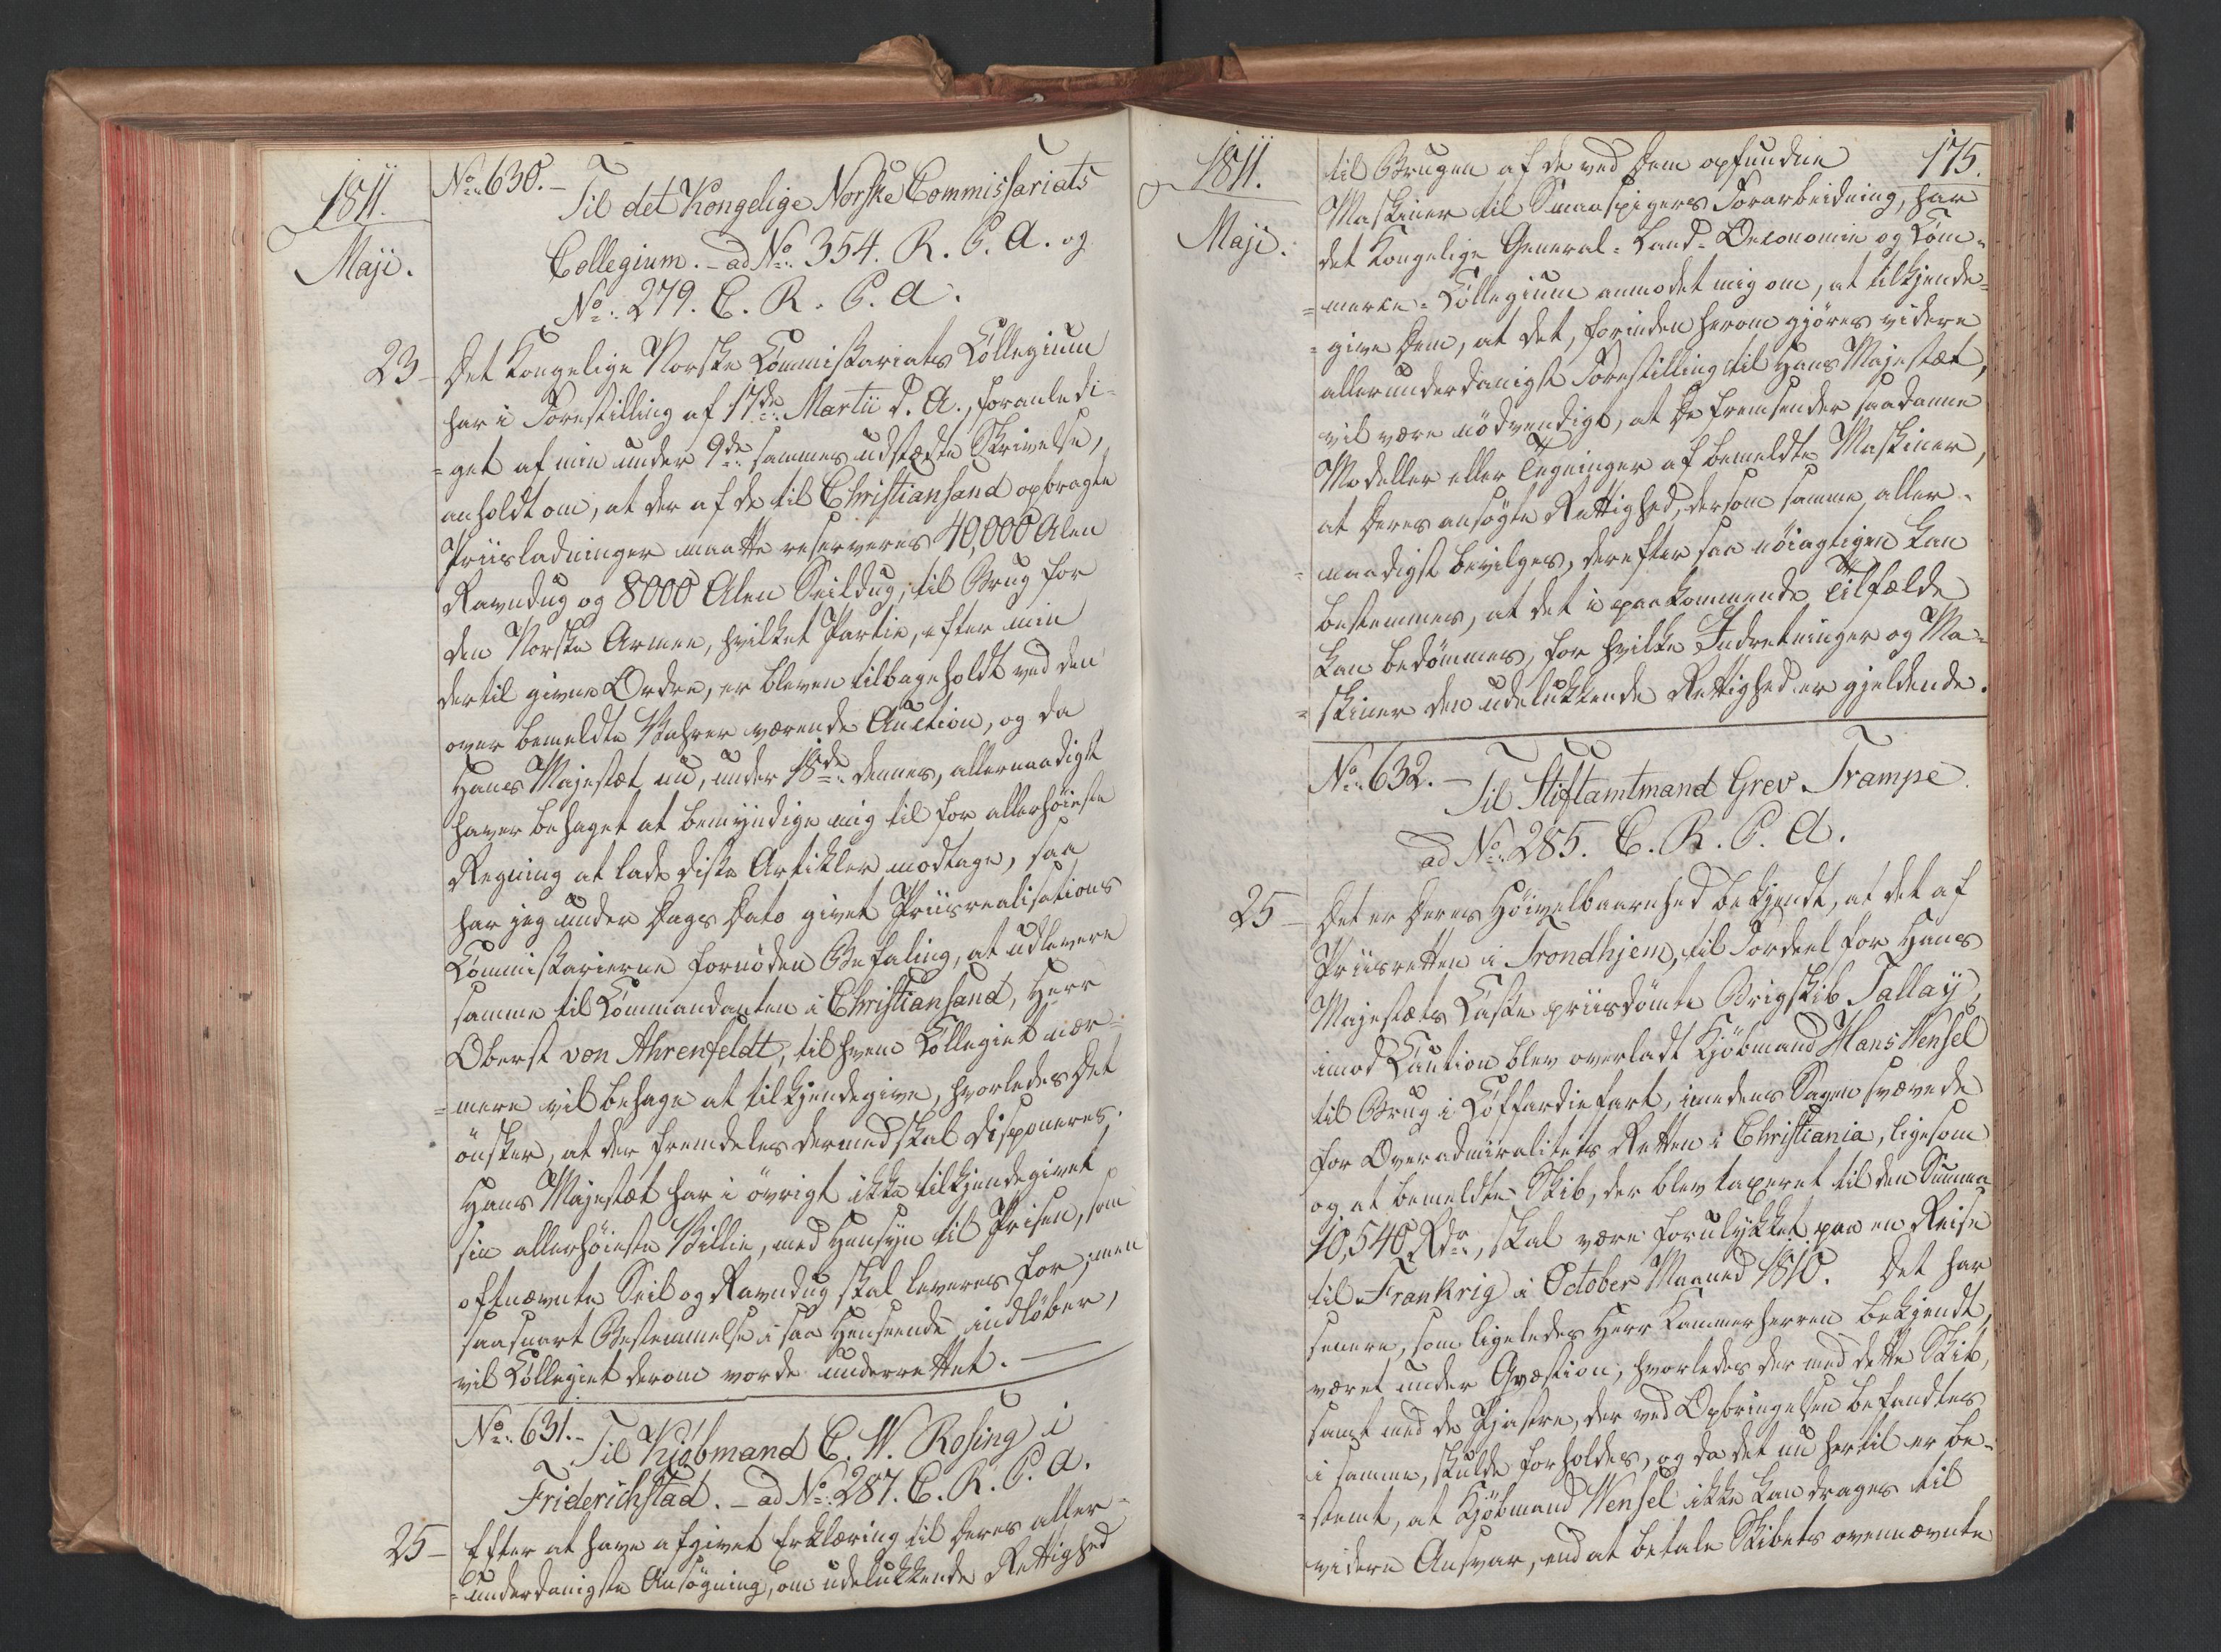 1811.
Maji.
No. 630. – Til det Kongelige Norske Commissariats
Collegium. – ad No. 354. R. P. A. og
No. 279. C. R. P. A.
23 – Det Kongelige Norske Commissariats Collegium
har i Forestilling af 17de Martii d. A., foranledi-
=get af min under 9de sammes udstædte Skrivelse,
anholdt om, at der af de til Christiansand opbragte
Priisladninger maatte reserveres 40,000 Alen
Ravndug og 8000 Alen Seildug, til Brug for
den Norske Armee, hvilket Partie, efter min
dertil givne Ordre, er bleven tilbageholdt ved den
over bemeldte Vahrer værende Auction, og da
Hans Majestæt nu, under 18de dennes, allernaadigst
haver behaget at bemyndige mig til for allerhöieste
Regning at lade disse Artikler modtage, saa
har jeg under Dags Dato givet Priisrealisations
Commissarierne fornöden Befaling, at udlevere
samme til Commandanten i Christiansand, Herr
Oberst von Ahrenfeldt, til hvem Collegiet nær-
=mere vil behage at tilkjendegive, hvorledes det
önsker, at der fremdeles dermed skal disponeres.
Hans Majestæt har i övrigt ikke tilkjendegivet
sin allerhöieste Villie, med Hensyn til Prisen, som
oftnævnte Seil og Ravndug skal leveres for; men
saasnart Bestemmelse i saa Henseende indlöber,
vil Collegiet derom vorde underrettet. –
No. 631. – Til Kjöbmand C. W. Rosing i
Friderichstad. – ad No. 287. C. R. P. A.
25 – Efter at have afgivet Erklæring til Deres aller-
=underdanigste Ansögning, om udelukkende Rettighed
1811.
Maji.
175.
til Brugen af de ved Dem opfundne
Maskiner til Smaaspigers Forarbeidning, har
det Kongelige General- Land- Oeconomie og Com-
=merce- Collegium anmodet mig om, at tilkjende-
=give Dem, at det, forinden herom gjöres videre
allerunderdanigst Forestilling til Hans Majestæt,
vil være nödvendigt, at De fremsender saadanne
Modeller eller Tegninger af bemeldte Maskiner,
at Deres ansögte Rettighed, dersom samme aller-
=naadigst bevilges, derefter saa nöiagtigen kan
bestemmes, at det i paakommende Tilfælde
kan bedömmes, for hvilke Indretninger og Ma-
=skiner den udelukkende Rettighed er gjeldende.
No. 632. – Til Stiftamtmand Grev Trampe
ad No. 285. C. R. P. A.
25 – Det er Deres Höivelbaarnhed bekjendt, at det af
Priisretten i Trondhjem, til Fordeel for Hans
Majestæts Casse priisdömte Brigskib Tallay,
imod Caution blev overladt Kjöbmand Hans Wensel
til Brug i Coffardiefart, imedens Sagen svævede
for Overadmiralitets Retten i Christiania, ligesom
og at bemeldte Skib, der blev taxeret til den Summa
10,540 Rdr., skal være forulykket paa en Reise
til Frankrig i October Maaned 1810. Det har
senere, som ligeledes Herr Kammerherren bekjendt,
været under Qvæstion, hvorledes der med dette Skib,
samt med de Pjastre, der ved Opbringelsen befandtes
i samme, skulde forholdes, og da det nu hertil er be-
=stemt, at Kjöbmand Wensel ikke kan drages til
videre Ansvar, end at betale Skibets ovennævnte